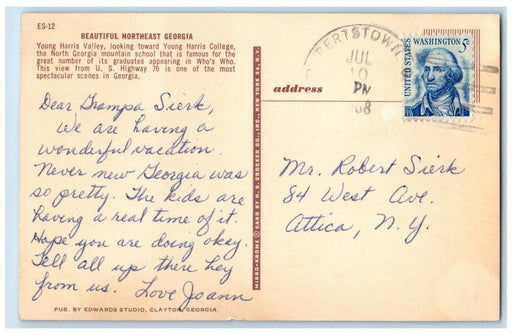 ES-12
BEAUTIFUL NORTHEAST GEORGIA
Young Harris Valley, looking toward Young Harris College,
the North Georgia mountain school that is famous for the
great number of its graduates appearing in Who's Who.
This view from U. S. Highway 76 is one of the most
spectacular scenes in Georgia.
Dear Grampa Sierk,
We are having a
wonderful vacation.
Never new Georgia was
so pretty. The kids are
having a real time of it.
Hope you are doing okay.
Tell all up there hey
from us. Love Joann
PUB. BY EDWARDS STUDIO, CLAYTON, GEORGIA
MIRRO-KROME ® CARD BY H. S. CROCKER CO., INC., NEW YORK 36, N.Y.
BERTSTOWN
JUL
10
PM
68
UNITED STATES
WASHINGTON 5c
address
Mr. Robert Sierk
84 West Ave.
Attica, N.Y.